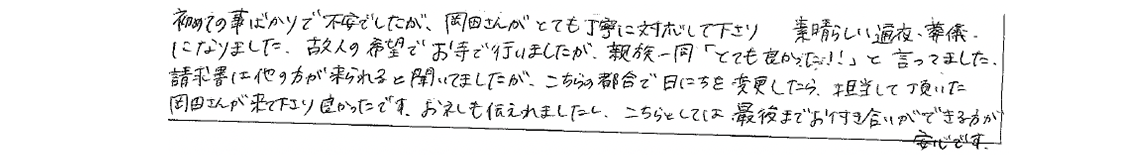 初めての事ばかりで不安でしたが、岡田さんがとても丁寧に対応して下さり 素晴らしい通夜・葬儀
になりました。故人の希望でお寺で行いましたが、親族一同「とても良かった!!」と言ってました。
請求書は他の方が来られると聞いてましたが、こちらの都合で日にちを変更したら、担当して頂いた
岡田さんが来て下さり良かったです。お礼も伝えれましたし、こちらとしては最後までお付き合いができる方が
安心です。